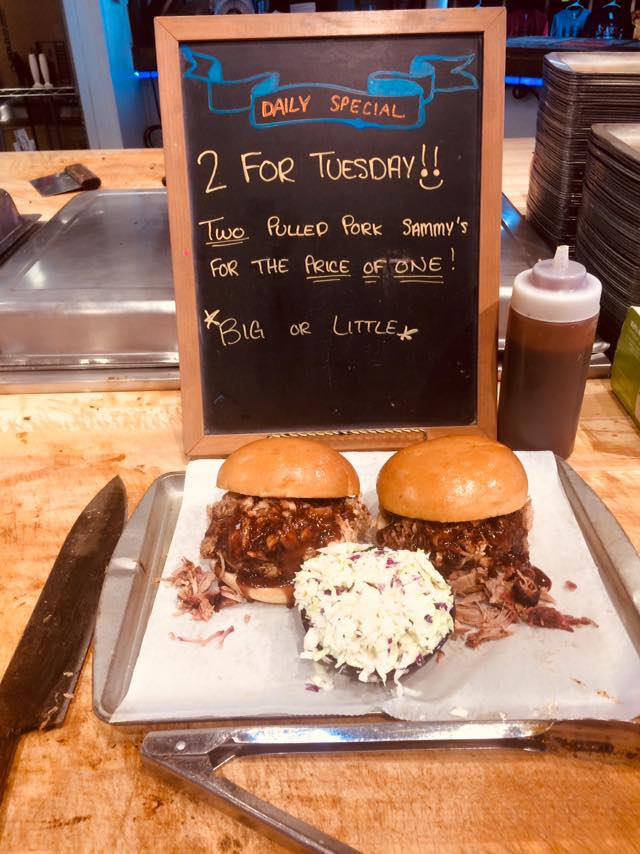 DAILY SPECIAL
2 FOR TUESDAY!!
TWO PULLED PORK SAMMY'S
FOR THE PRICE OF ONE!
*BIG OR LITTLE*